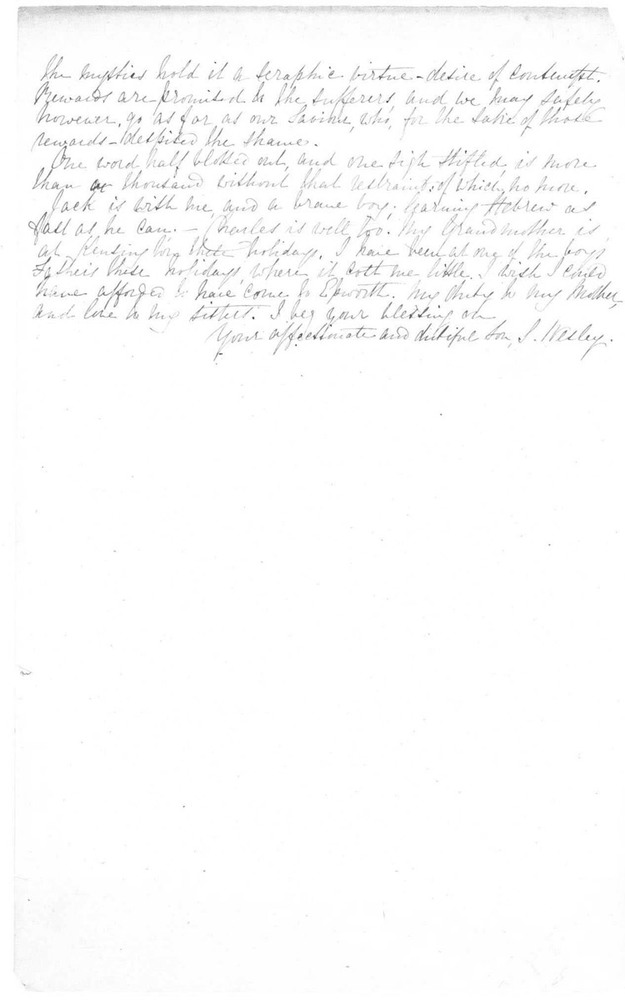 the mystics hold it a seraphic virtue - desire of contempt.
Rewards are promised to the sufferers, and we may safely
however, go as far as our Saviour, who, for the sake of those
rewards - despised the shame.
One word half blotted out, and one sigh stifled is more
than a thousand without that restraint: of which no more.
Jack is with me and a brave boy, learning Hebrew as
fast as he can. - Charles is well too. My Grandmother is
at Kensington these holidays. I have been at one of the boys
Fathers these holidays where it cost me little. I wish I could
have afforded to have come to Epworth. My duty to my Mother,
and love to my sisters. I beg your blessing on
Your affectionate and dutiful Son, S. Wesley.